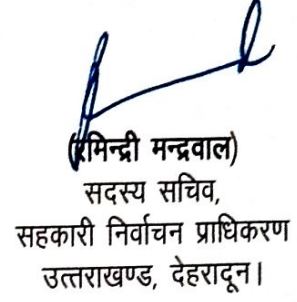 (रमिन्द्री मन्द्रवाल)
सदस्य सचिव,
सहकारी निर्वाचन प्राधिकरण
उत्तराखण्ड, देहरादून।